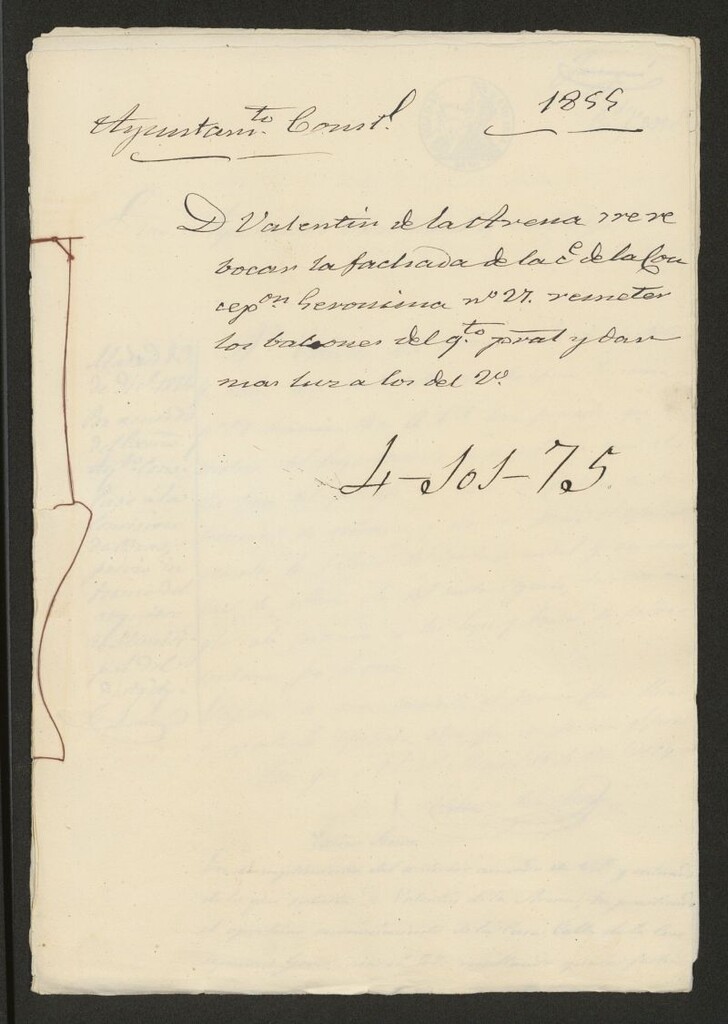 Ayuntam.to Const.l 1855
D Valentin de la Arena sre re
vocar la fachada de la c.e de la Con
cepon Geronima no 27. remeter
los balcones del q.to pral y dar
mas luz a los del 2o
4-101-75.